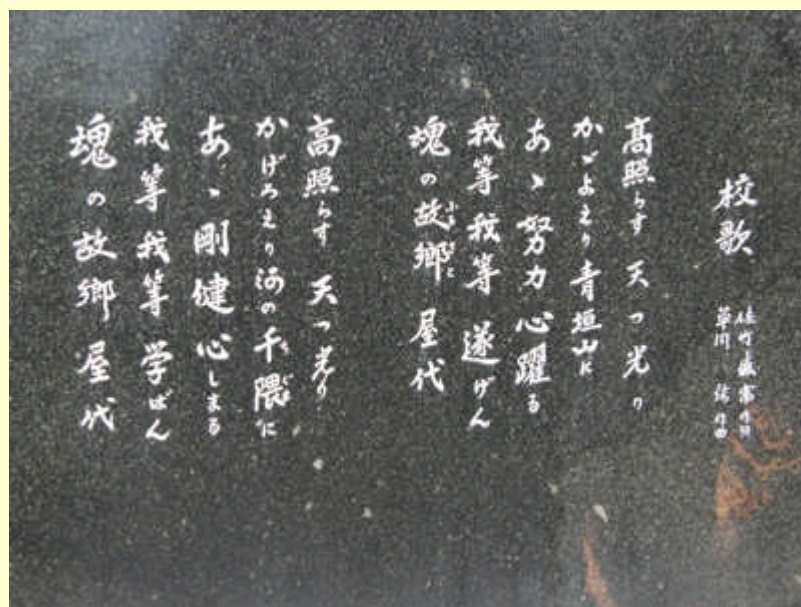 校歌
草川 信 作曲
高照らす 天つ光り
かゞよえり 青垣山に
あゝ努力 心躍る
我等我等 遂げん
塊の故郷 屋代
高照らす 天つ光り
かげろえり 河の千隈に
あゝ剛健 心しまる
我等我等 学ばん
塊の故郷 屋代